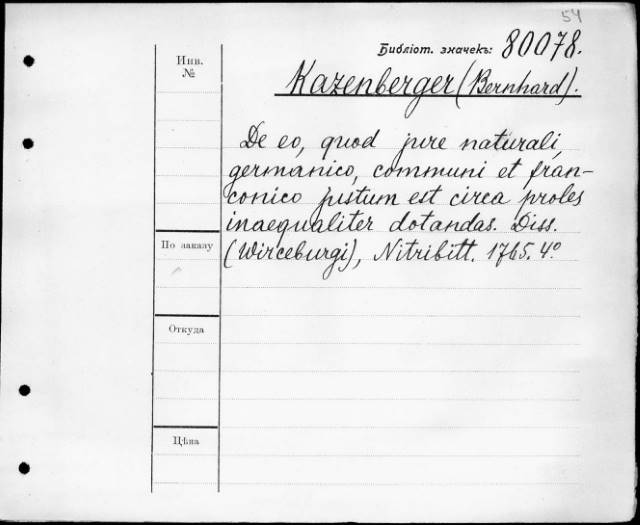 54
Библіот. значекъ: 80078.
Инв.
№
Kazenberger (Bernhard).
De eo, quod jure naturali,
germanico, communi et fran-
conico justum est circa proles
inaequaliter dotandas. Diss.
(Wirceburgi), Nitribitt. 1765. 4º
По заказу
Откуда
Цѣна